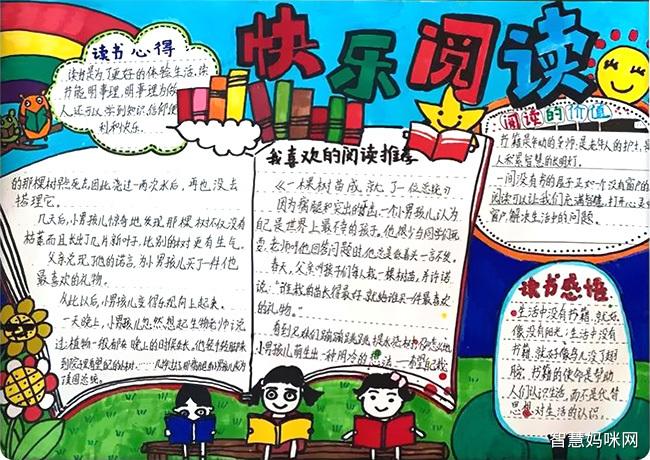 快乐阅读
读书心得
读书是为了更好的体验生活。读
书能明事理，明事理为做
人。还可以学到知识，给你便
利和快乐。
阅读的价值
书籍是年幼的导师，是老年人的护士，是
人积蓄智慧的长明灯。
一间没有书的屋子正如一个没有窗户的
阅读可以让我们充满智慧，打开心灵
窗户，解决生活中的问题。
我喜欢的阅读推荐
《一棵树苗成就了一位总统》
因为病腿和突出的牙齿，一个小男孩儿认为
自己是世界上最不幸的孩子。他很少与同学们玩
耍，老师叫他回答问题时，他总是低着头一言不发。
春天，父亲叫孩子们每人栽一棵树苗，并许诺
说："谁栽的苗长得最好，就给谁买一件最喜欢
的礼物。"
看到兄妹们蹦蹦跳跳提水浇树
小男孩儿萌生出一种阴冷的想法——希望自己栽
的那棵树早点死去。因此浇过一两次水后，再也没去
搭理它。
几天后，小男孩儿惊奇地发现那棵树不仅没有
枯萎，而且长出了几片新叶子，比别的树更有生气。
父亲兑现了他的诺言，为小男孩儿买了一件他
最喜欢的礼物。
从此以后，小男孩儿变得乐观向上起来。
一天晚上，小男孩儿忽然想起生物老师说
过：植物一般都在晚上的时候生长，他轻手轻脚来
到院子里
读书感悟
生活中没有书籍，就好
像没有阳光；生活中没有
书籍，就好像鸟儿没了翅
膀。书籍的使命是帮助
人们认识生活，而不是代替
思想对生活的认识。
智慧妈咪网